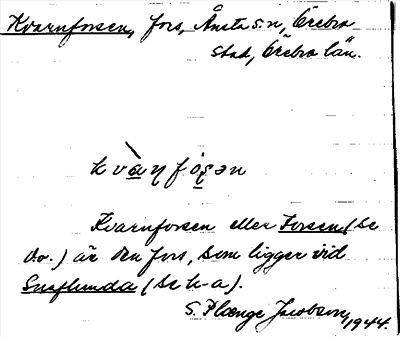 Kvarnforsen, fors, Ånsta sn, Örebro
stad, Örebro län.
kvàɳfo̱ʂən
Kvarnforsen eller Forsen (se
d.o.) är den fors, som ligger vid
(se k-a).
S. Plænge Jacobson, 1944.